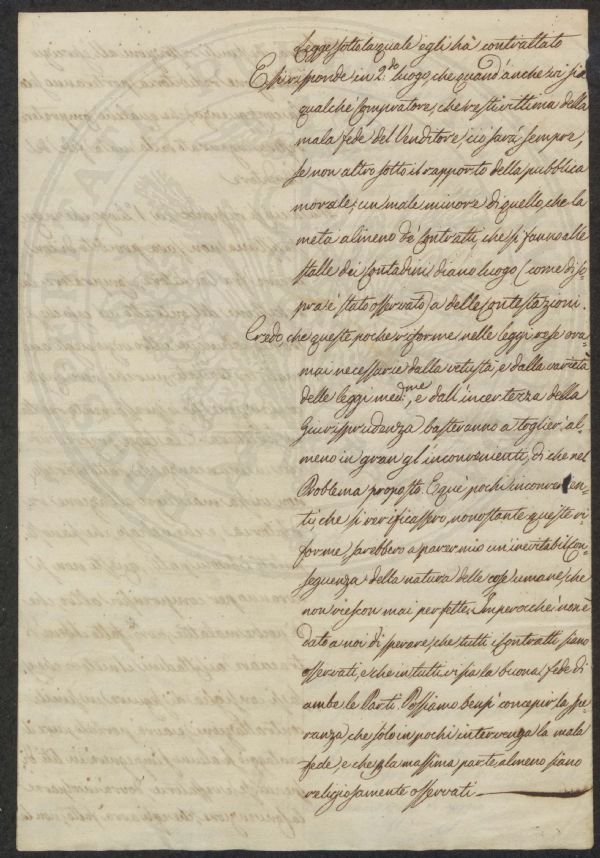 Legge sotto la quale egli hà contrattato
E si risponde in 2.do luogo, che quand'anche vi sia
qualche Compratore, che resti vittima della
mala fede del Venditore, ciò sarà sempre,
se non altro sotto il rapporto della pubblica
morale, un male minore di quello, che la
metà almeno de' Contratti, che si fanno alle
stalle dei Contadini diano luogo (come di so-
pra è stato osservato) a delle Contestazioni.
Credo, che queste poche riforme nelle leggi rese ora-
mai necessarie dalla vetustà, e dalla varietà
delle leggi med.me, e dall'incertezza della
Giurisprudenza basteranno a toglier al-
meno in gran gl'inconvenienti, di che nel
Problema proposto. E que' pochi inconvenien-
ti, che si verificassero, nonostante queste ri-
forme, sarebbero a parer mio un'inevitabil con-
seguenza della natura delle cose umane, che
non riescon mai perfette. Imperocchè non è
dato a noi di sperare, che tutti i Contratti siano
osservati, e che in tutti vi sia la buona fede di
ambe le Parti. Possiamo bensì concepir la spe-
ranza, che solo in pochi intervenga la mala
fede, e che la massima parte almeno siano
religiosamente osservati.